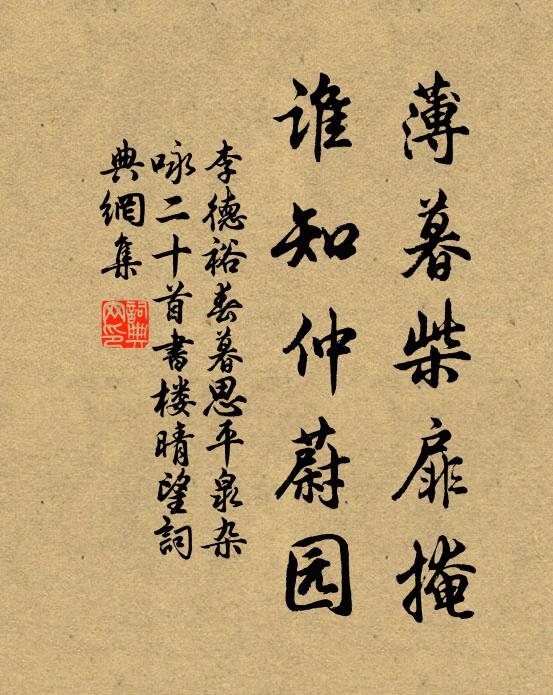 薄暮柴扉掩
谁知仲蔚园
李德裕春暮思平泉杂
咏二十首书楼晴望词
典網集
詞典
网印